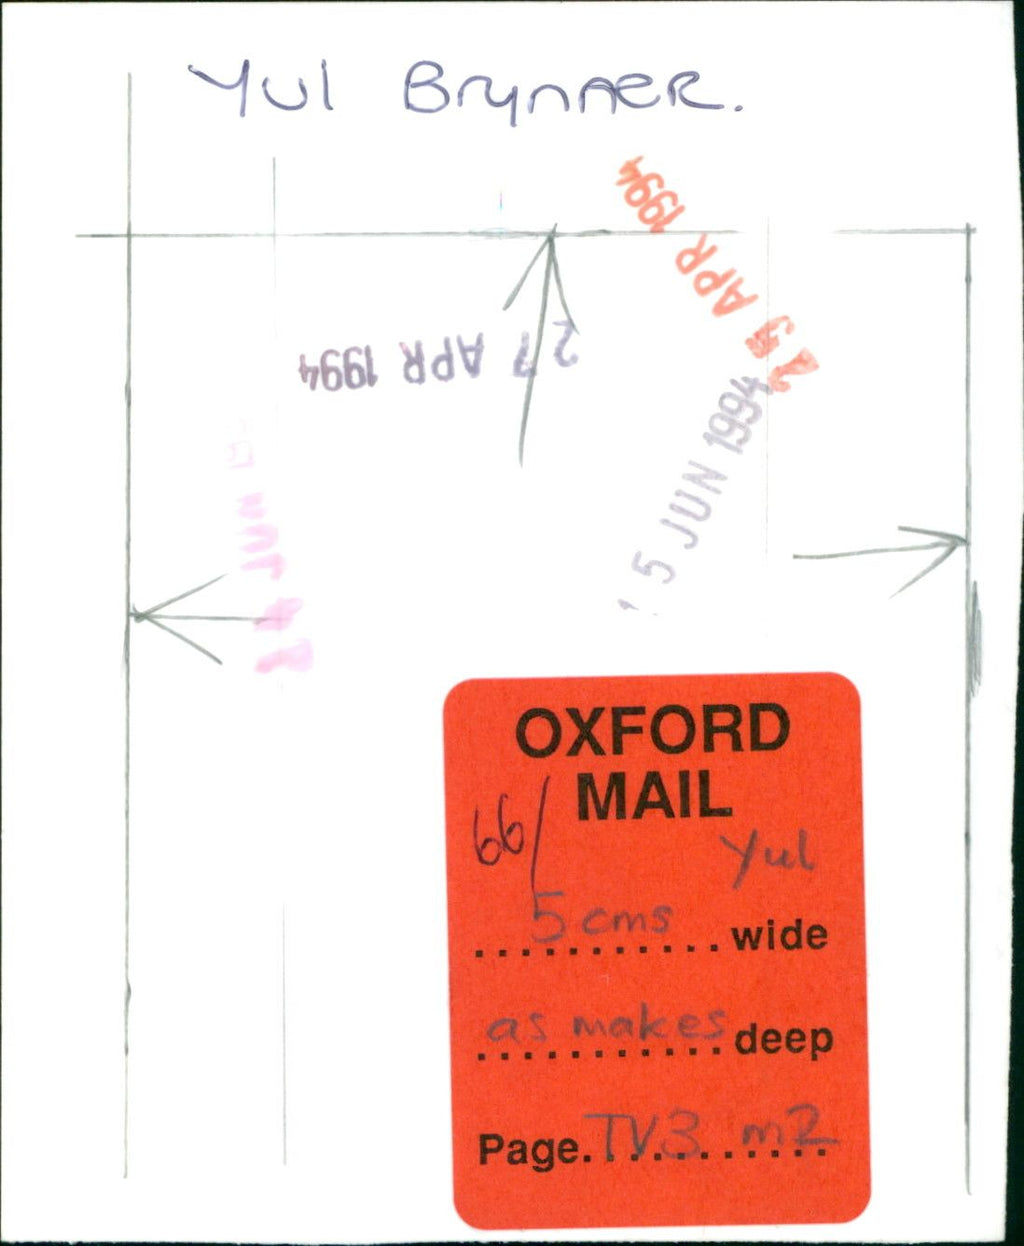 Yul Brynner.
29 APR 1994
27 APR 1994
15 JUN 1994
JUN
OXFORD
MAIL
66/
Yul
5 cms wide
as makes deep
Page. TV3 m2